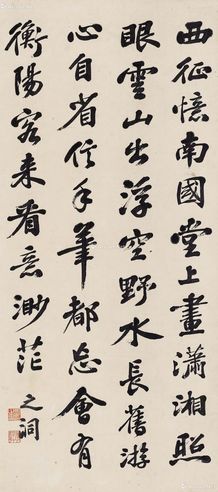 西征憶南國堂上畫瀟湘照
眼雲山出浮空野水長舊游
心自省信手筆都忘會有
衡陽客来看意渺茫 之洞